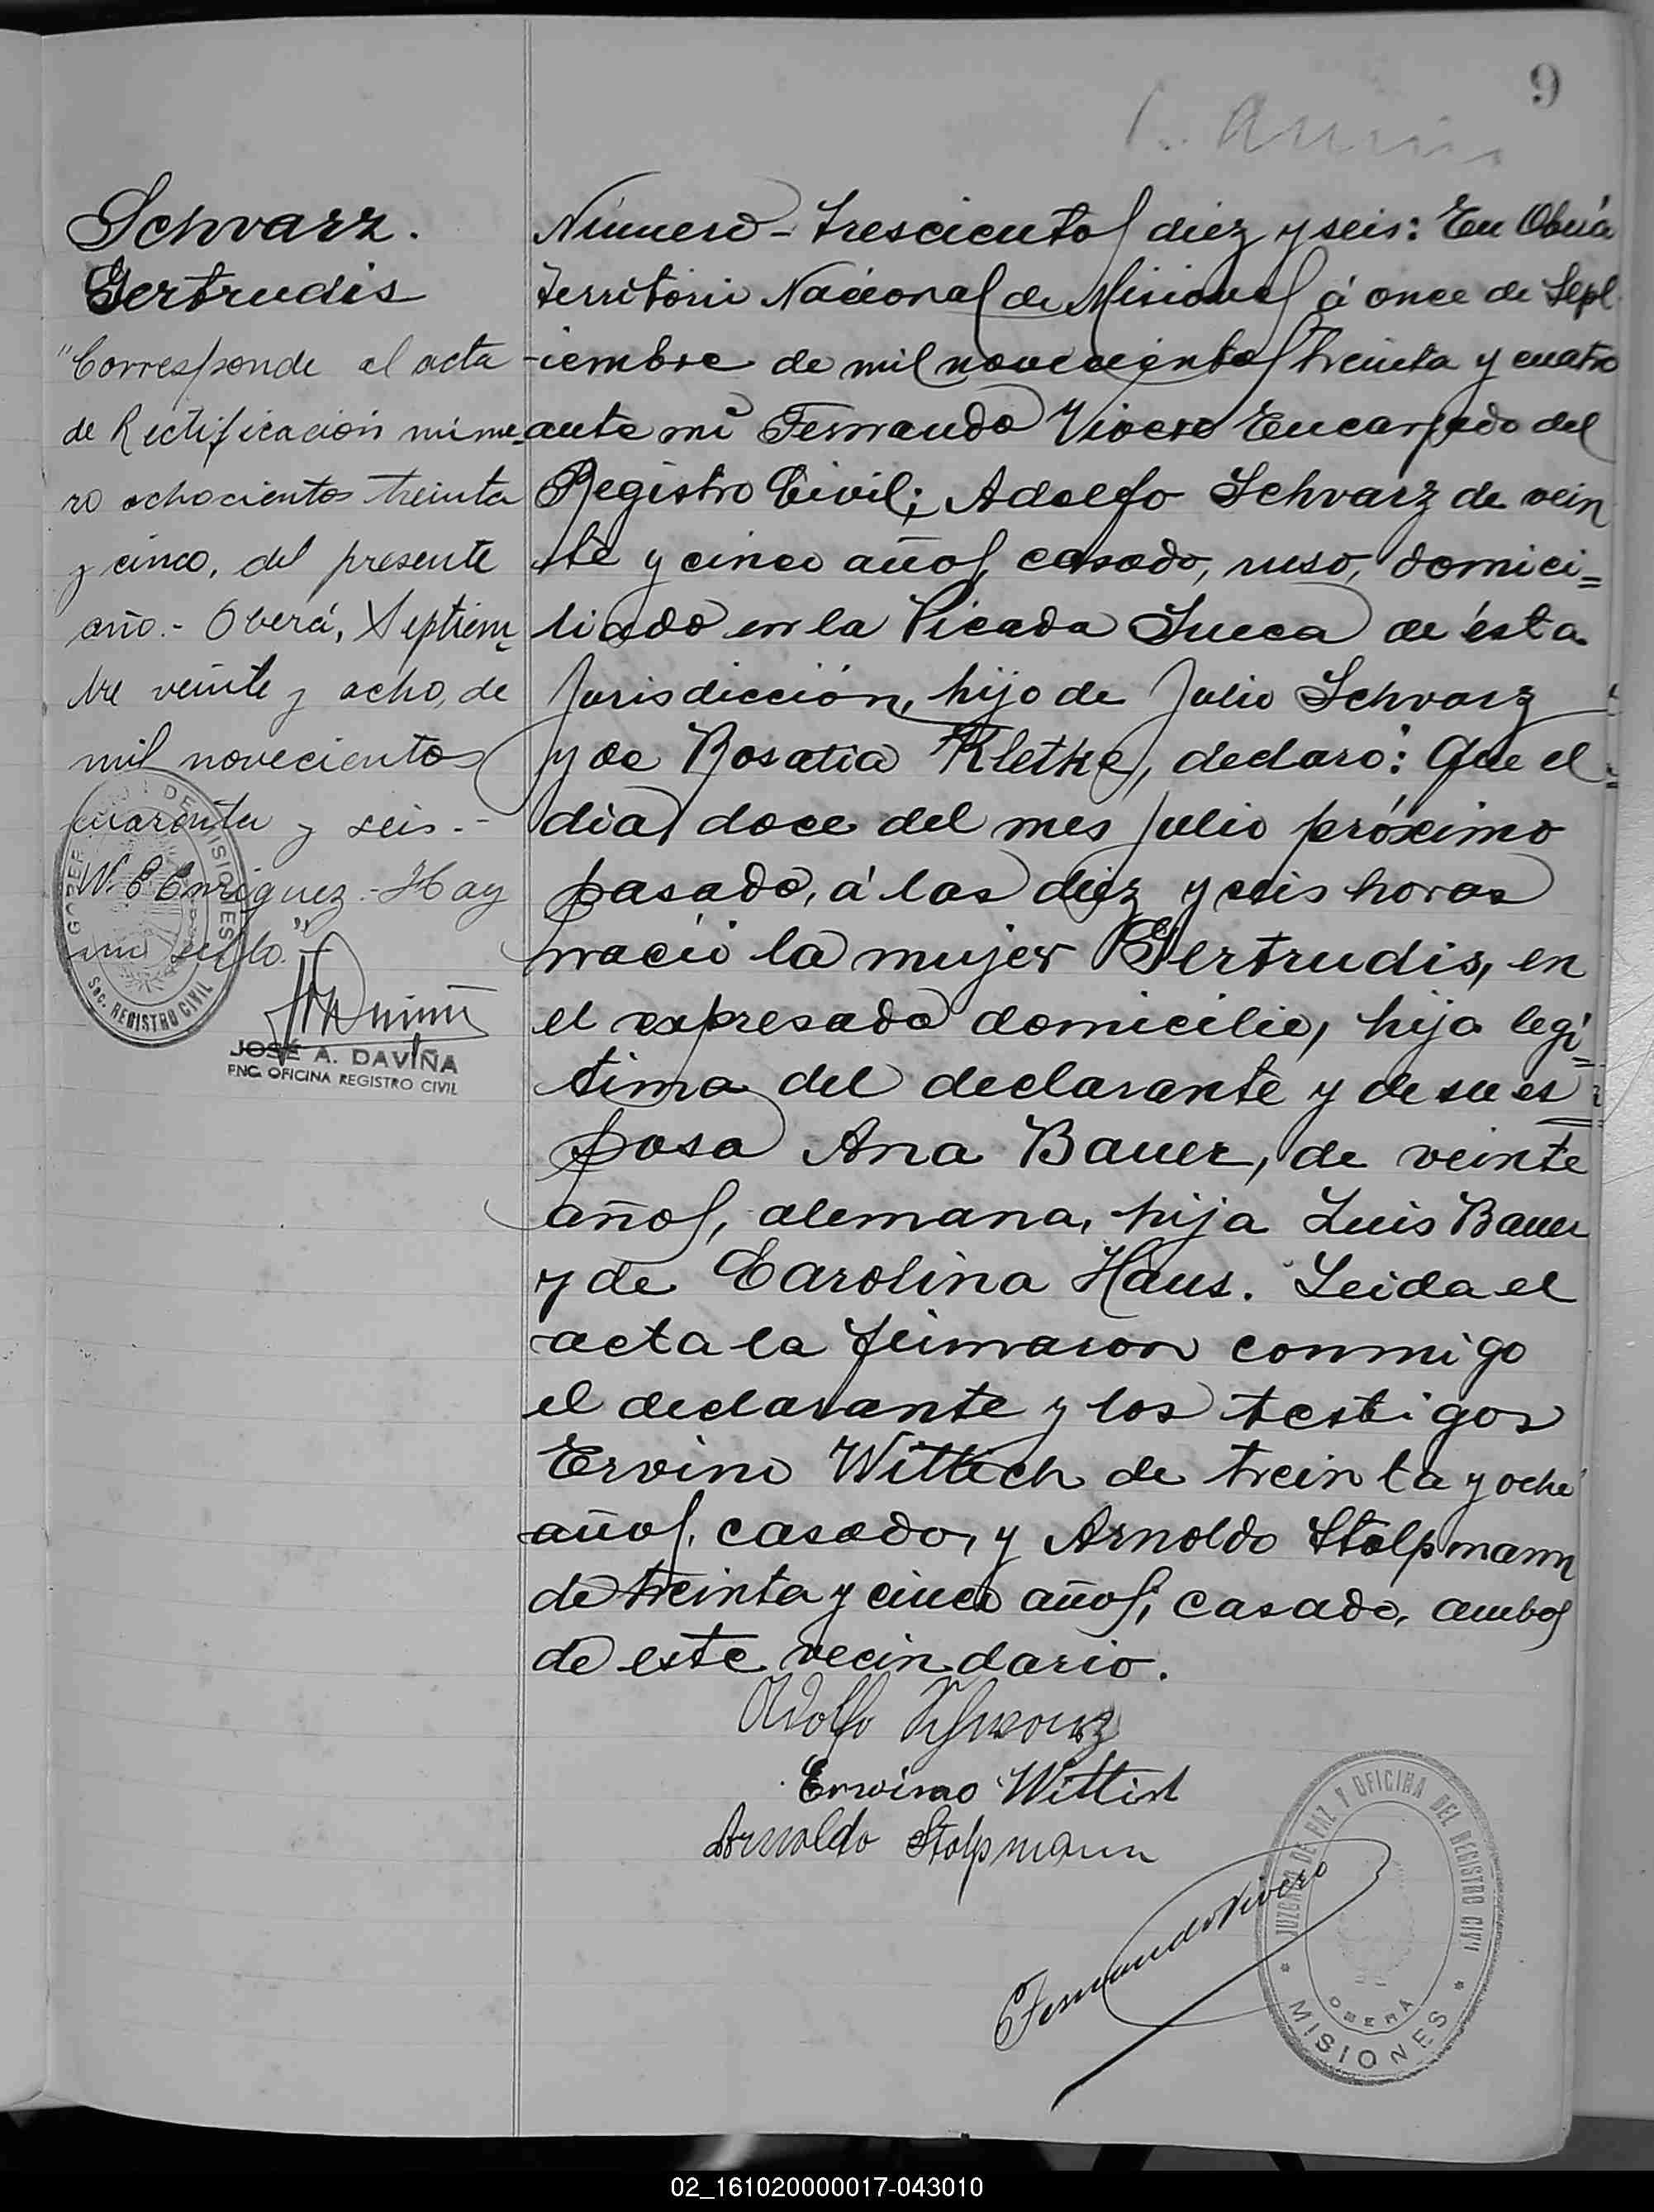 9
Schvarz.
Gertrudis
"Corresponde al acta
de Rectificación núme-
ro ochocientos treinta
y cinco, del presente
año.- Oberá, Septiem-
bre veinte y ocho, de
mil novecientos
cuarenta y seis.-
N. E. Enriguez.- Hay
un sello."
JOSÉ A. DAVIÑA
ENC. OFICINA REGISTRO CIVIL
GOBERNACION DE MISIONES
Sec. REGISTRO CIVIL
Número - trescientos diez y seis: En Oberá
territorio Nacional de Misiones á once de Sept
-iembre de mil novecientos treinta y cuatro
ante mi Fernando Vivero Encargado del
Registro Civil; Adolfo Schvarz de vein
te y cinco años, casado, ruso, domici=
liado en la Picada Sueca de ésta
Jurisdicción, hijo de Julio Schvarz
y de Rosalia Kletke, declaró: Que el
dia doce del mes Julio próximo
pasado, á las diez y seis horas
nació la mujer Gertrudis, en
el expresado domicilio, hija legi=
tima del declarante y de su es=
posa Ana Bauer, de veinte
años, alemana, hija Luis Bauer
y de Carolina Haus. Leida el
acta la firmaron conmigo
el declarante y los testigos
Ervino Wittich de treinta y ocho
años, casado, y Arnoldo Stolpmann
de treinta y cinco años, casado, ambos
de este vecindario.
Adolfo Schwarz
Erwino Wittich
Arnoldo Stolpmann
Fernando Vivero
JUZGADO DE PAZ Y OFICINA DEL REGISTRO CIVIL
OBERA
* MISIONES *
02_161020000017-043010